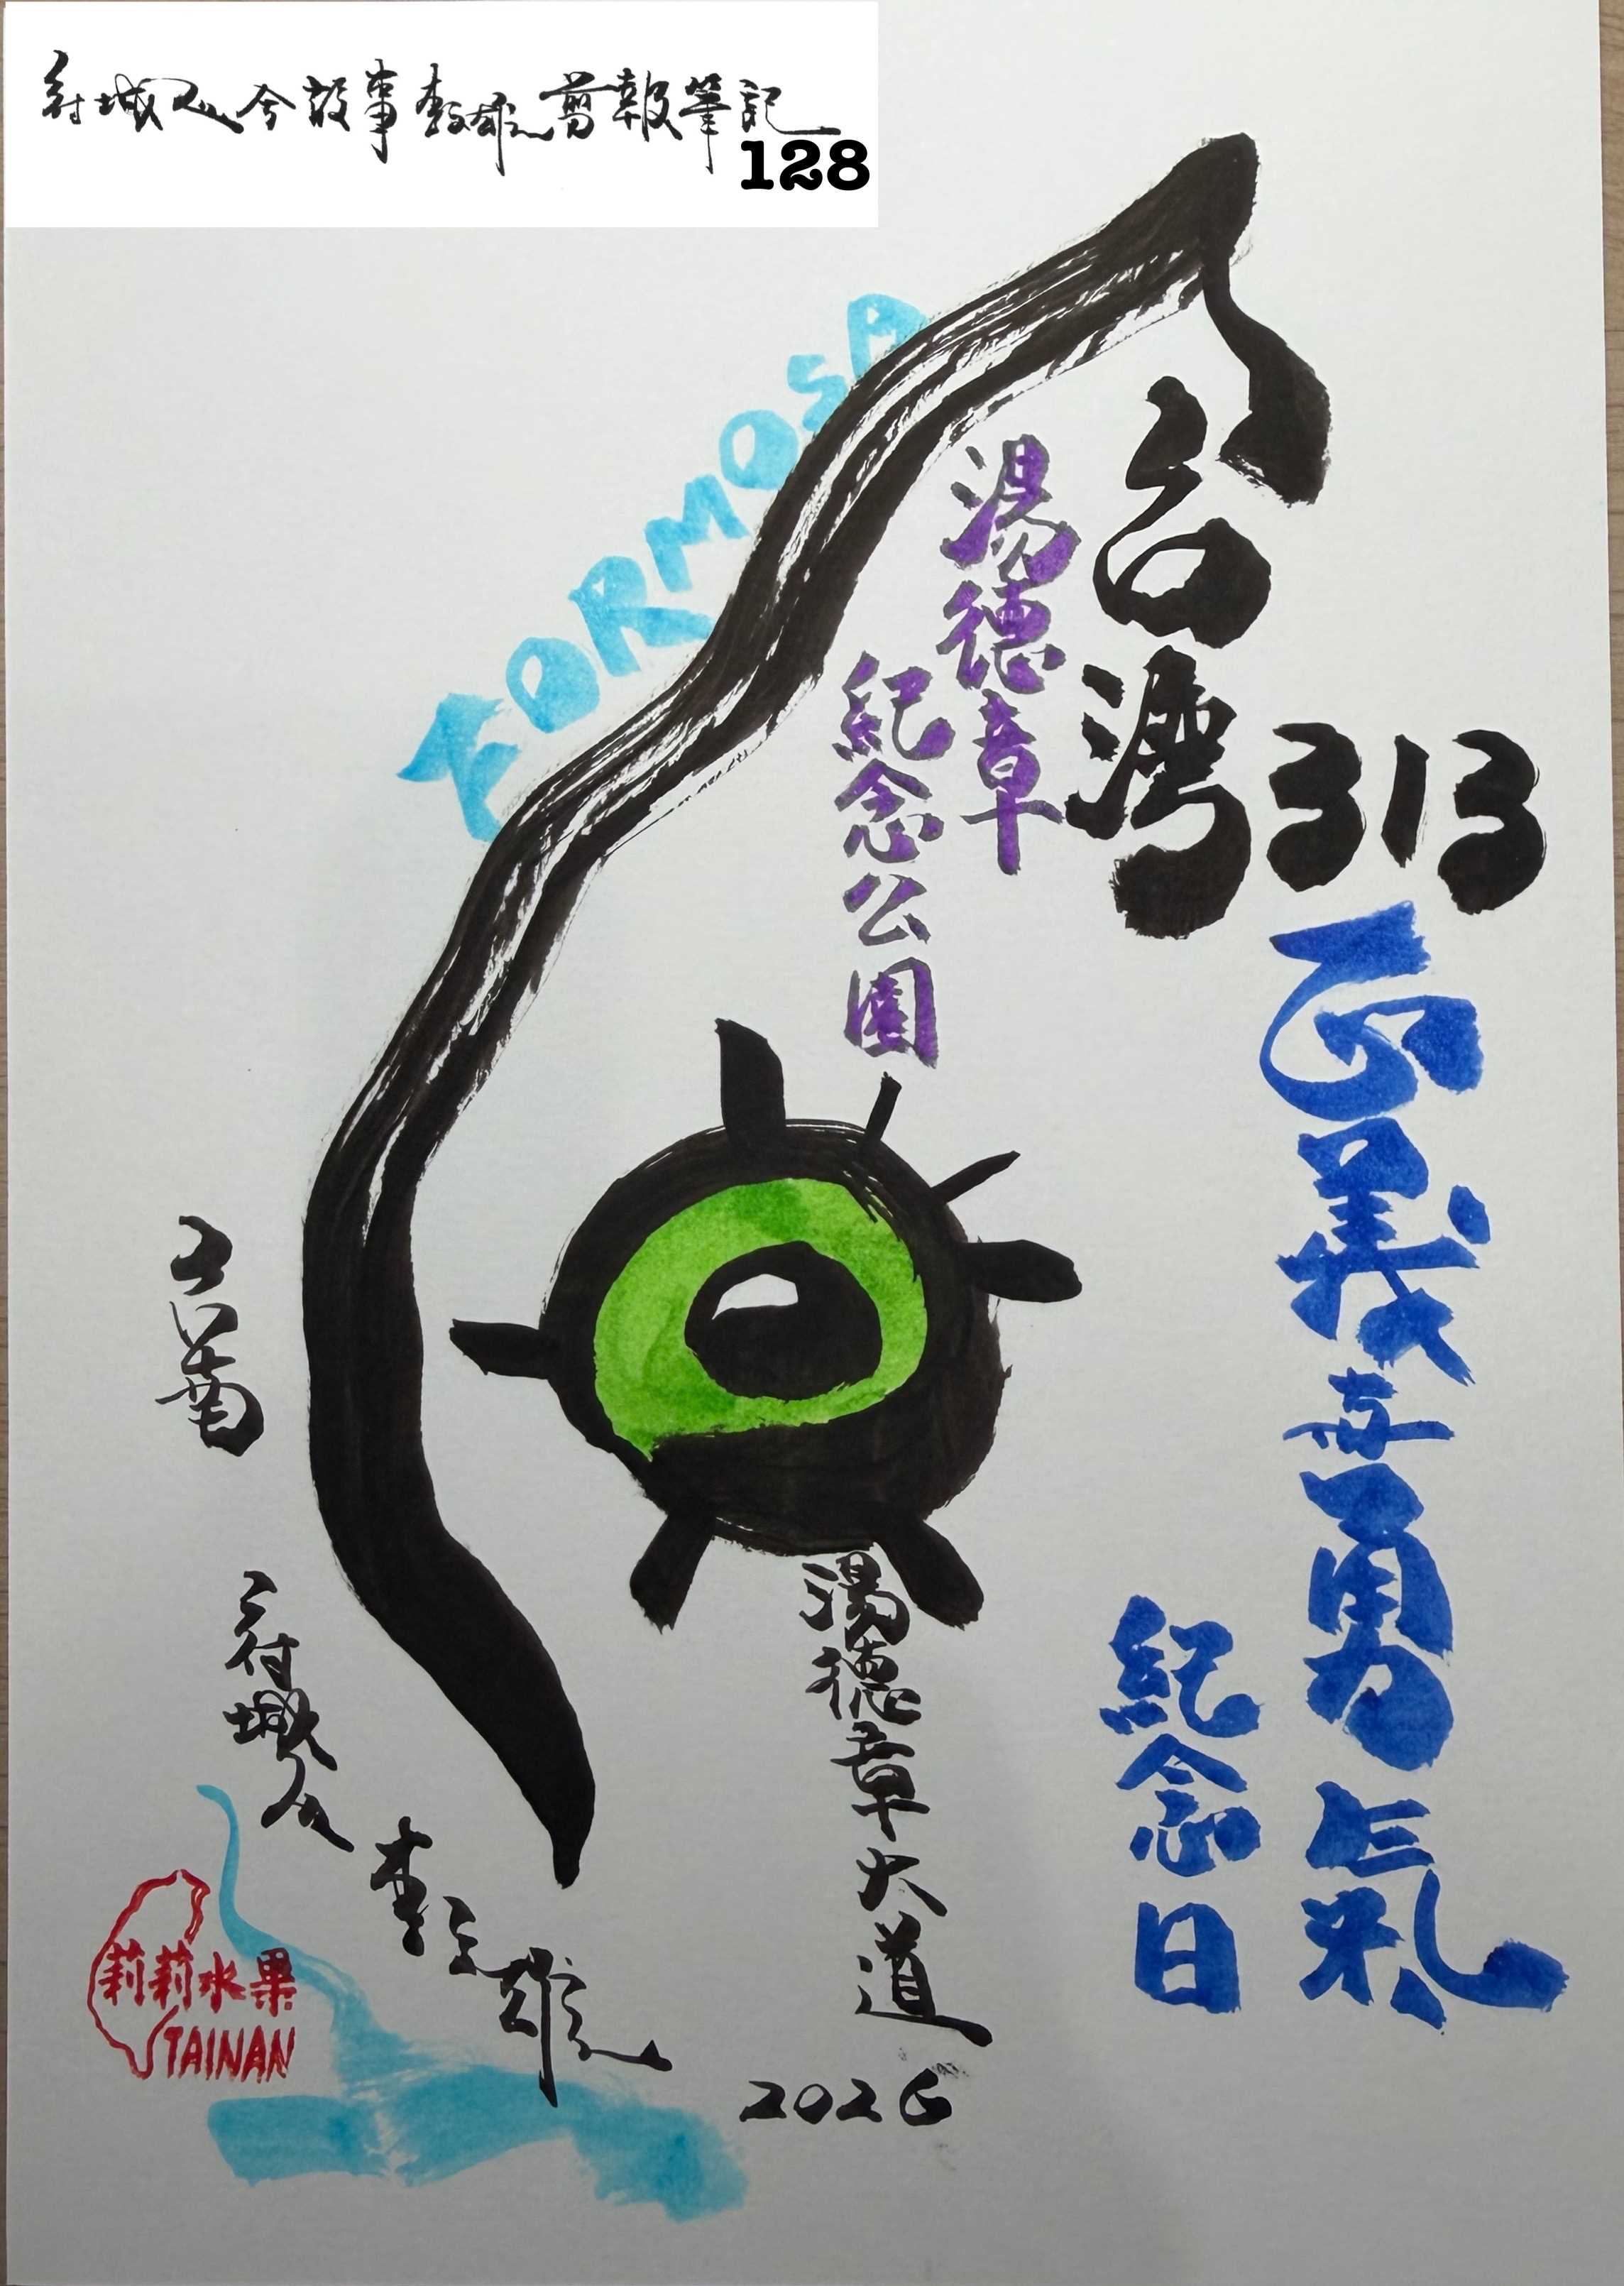 府城人今故事李文雄剪報筆記
128
FORMOSA
台灣313
正義與勇氣
紀念日
湯德章
紀念公園
湯德章大道
2026
府城人
李文雄
莉莉水果
TAINAN